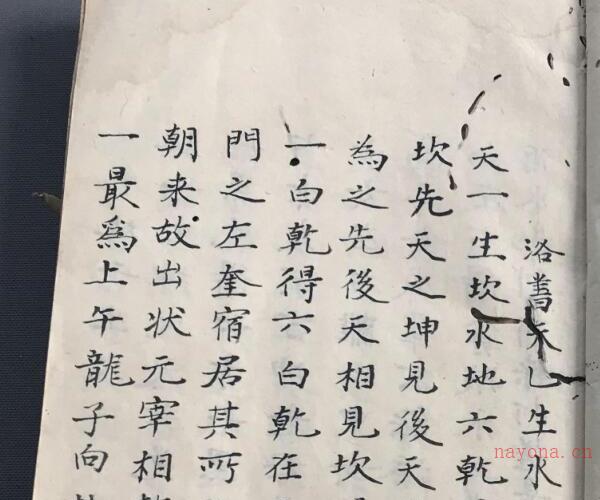 洛書天乙生水
天一生坎水地六乾
坎先天之坤見後天
為之先後天相見坎
一白乾得六白乾在
門之左奎宿居其所
朝来故出状元宰相
一最爲上午龍子向
nayona.cn